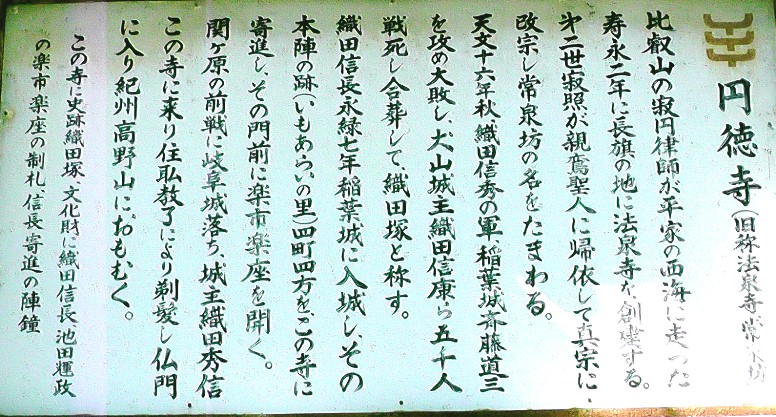 円徳寺(旧称法泉寺、常泉坊
比叡山の寂円律師が平家の西海に走った
寿永二年に長旗の地に法泉寺を創建する。
才二世寂照が親鸞聖人に帰依して真宗に
改宗し常泉坊の名をたまわる。
天文十六年秋、織田信秀の軍、稲葉城斉藤道三
を攻め大敗し、犬山城主織田信康ら五千人
戦死し合葬して、織田塚と称す。
織田信長永緑七年稲葉城に入城し、その
本陣の跡(いもあらいの里)四町四方をこの寺に
寄進し、その門前に楽市楽座を開く。
関ヶ原の前戦に岐阜城落ち、城主織田秀信
この寺に来り住職教了により剃髪し仏門
に入り紀州高野山におもむく。
この寺に史跡織田塚、文化財に織田信長 池田輝政
の楽市楽座の制札、信長寄進の陣鐘